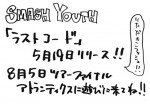 SMASH YOUTH
「ラストコード」
5月19日リリース!!
8月5日ツアーファイナル
アトランティックスに遊びに来てね!!